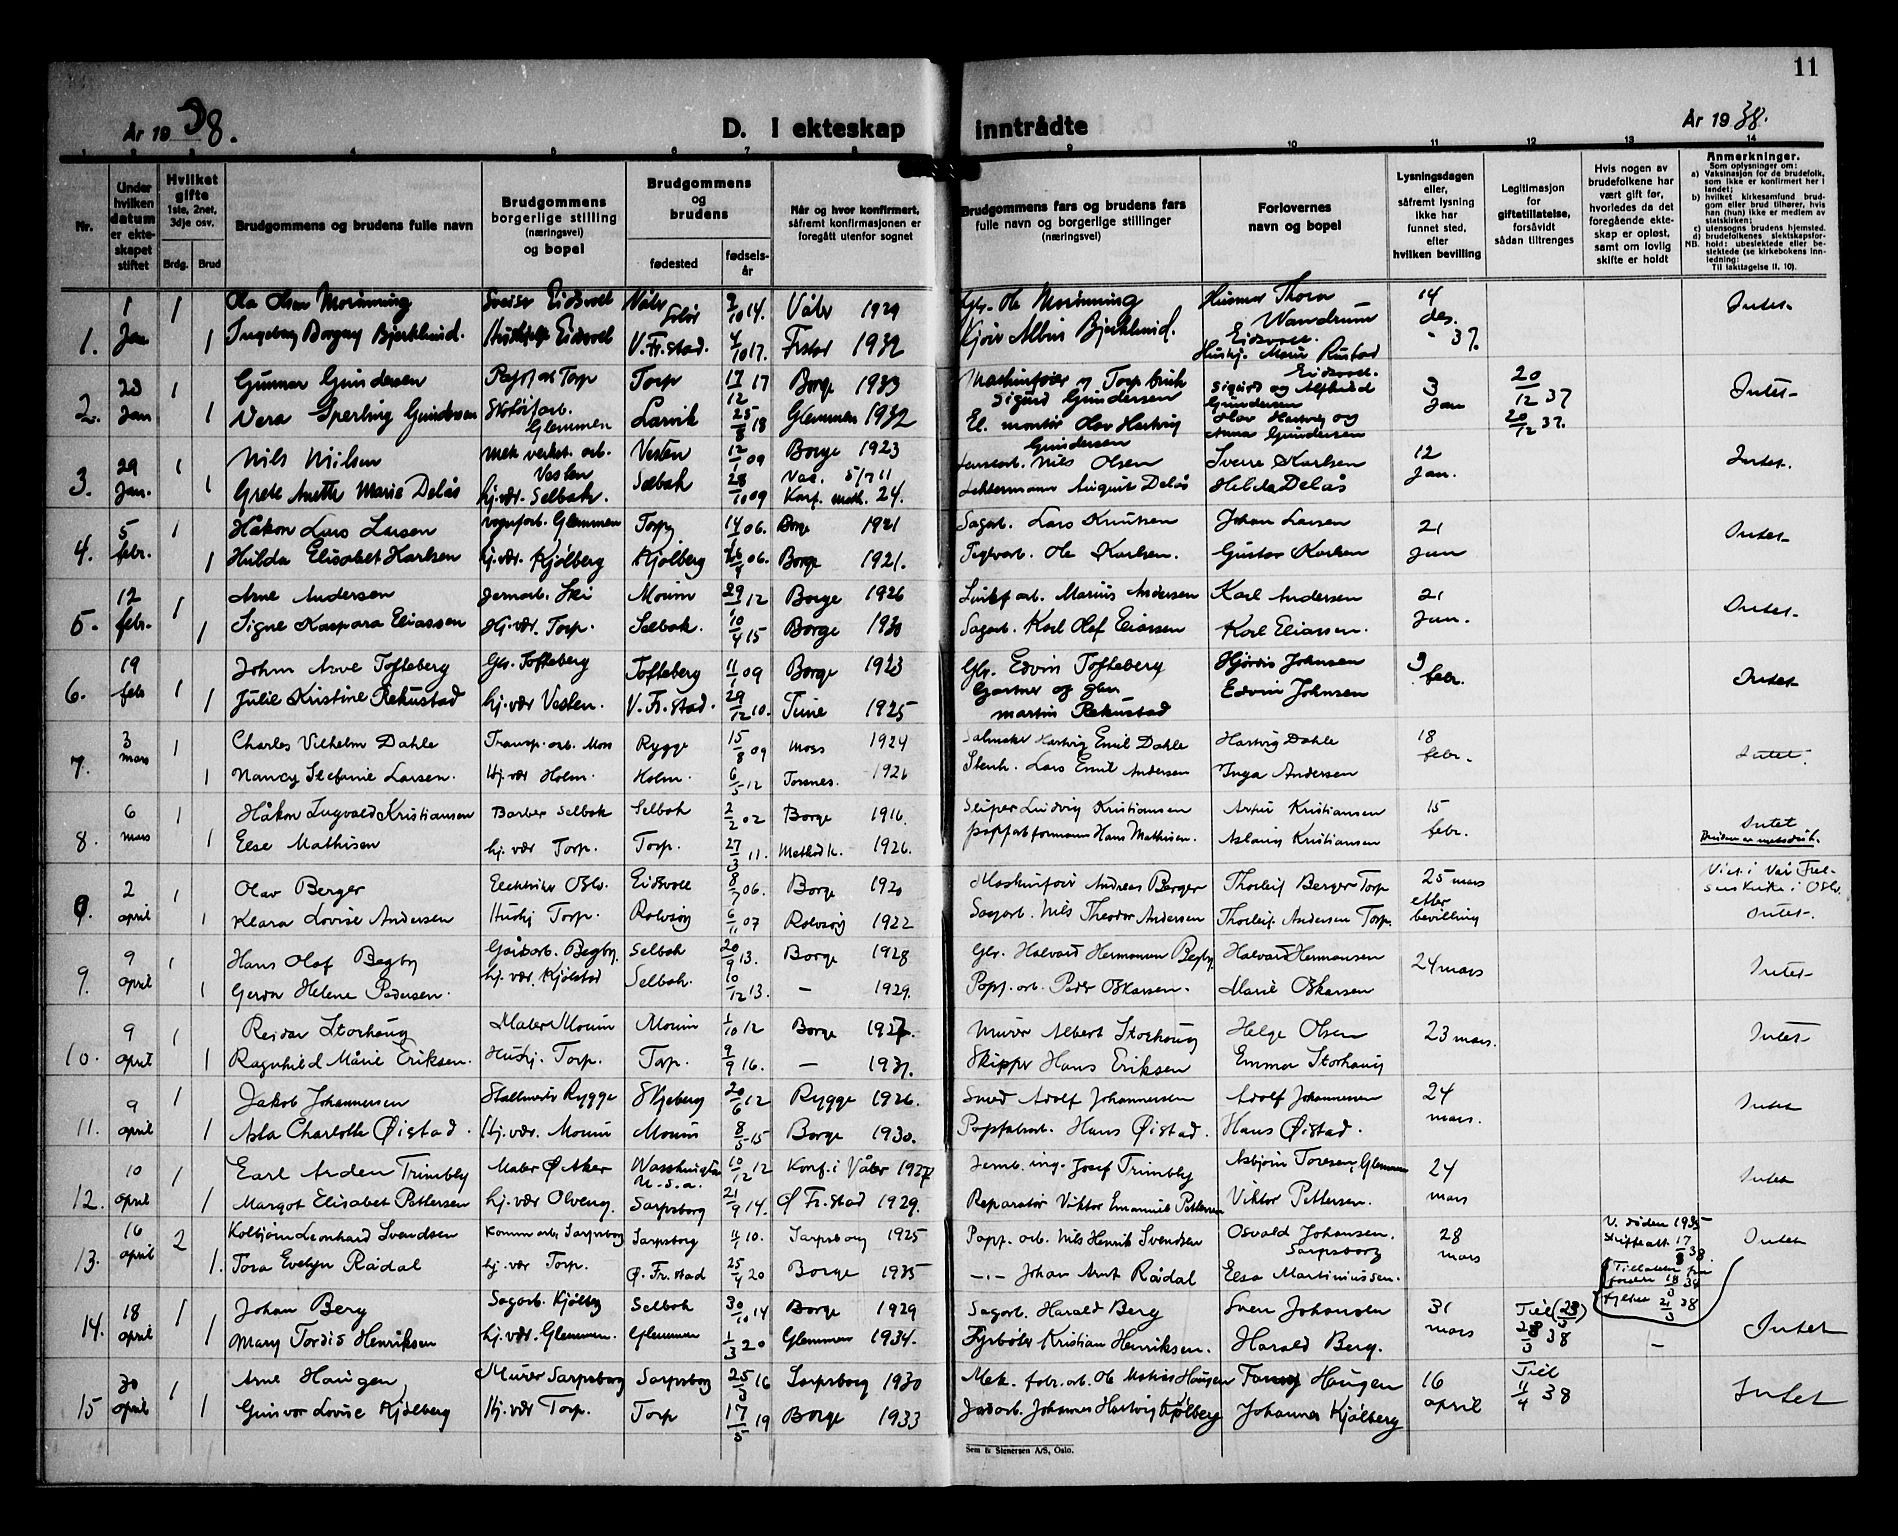 11
År 1938.
D. I ekteskap inntrådte
År 1938.
1 2 3 4 5 6 7 8 9 10 11 12 13 14
Nr.
Under hvilken datum er ekteskapet stiftet
Hvilket gifte 1ste, 2net, 3dje osv.
Brdg. Brud
Brudgommens og brudens fulle navn
Brudgommens borgerlige stilling (næringsvei) og bopel
Brudgommens og brudens
fødested
fødselsår
Når og hvor konfirmert, såfremt konfirmasjonen er foregått utenfor sognet
Brudgommens fars og brudens fars fulle navn og borgerlige stillinger (næringsvei)
Forlovernes navn og bopel
Lysningsdagen eller, såfremt lysning ikke har funnet sted, efter hvilken bevilling
Legitimasjon for giftetillatelse, forsåvidt sådan tiltrenges
Hvis nogen av brudefolkene har vært gift før, hvorledes da det foregående ekteskap er opløst, samt om lovlig skifte er holdt
Anmerkninger.
Som oplysninger om:
a) Vaksinasjon for de brudefolk, som ikke er konfirmert her i landet;
b) hvilket kirkesamfund brudgom eller brud tilhører, hvis han (hun) ikke er medlem av statskirken;
c) utensogns brudens hjemsted.
d) brudefolkenes slektskapsforhold: ubeslektede eller beslektede (se kirkebokens innledning:
NB. Til iakttagelse II, 10).
1. 1 Jan 1 Ola Olsen Eidsvoll Våler Solør 2/10 14. Våler 1929 Ole 14 des. 37. Intet
1 Ingeborg Borgny Bjerklund. Eidsvoll V. Fr.stad. 4/10 17. Frstad 1932 Albin Bjerklund. Eidsvoll. Hushj. Marie Rustad Eidsvoll.
2. 23 Jan 1 Gunnar Gundersen Torp Torp 17/12 17 Borge 1933 Maskinfører v. Torp bruk Sigurd Gundersen Sigurd og Alfhild Gundersen 3 Jan 20/12 37 Intet
1 Vera Sperling Gundersen Glemmen Larvik 25/8 18 Glemmen 1932 El. montør Olav Hartvig Gundersen Olav Hartvig og Anna Gundersen 20/12 37.
3. 29 Jan. 1 Nils Nilsen Mek. verkst. arb. Vesten Vesten 12/1 09 Borge 1923 Nils Olsen Sverre Karlsen 12 Jan. Intet
1 Grete Anette Marie Delås hj.vær. Selbak. Selbak 28/10 09 Vac. 5/7 11 Konf. met. 24. August Delås Hilda Delås
4. 5 febr. 1 Håkon Lars Larsen Glemmen Torp 14/1 06. Borge 1921 Sagarb. Lars Knutsen Johan Larsen 21 Jan Intet
1 Hilda Elisabet Karlsen hj.vær. Kjølberg Kjølberg 26/4 06. Borge 1921. Teglverkarb. Ole Karlsen. Gustav Karlsen
5. 12 febr. 1 Arne Andersen Jernarb. Ski Moum 29/1 12 Borge 1926 Marius Andersen Karl Andersen 21 Jan. Intet
1 Signe Kaspara Eliassen Hj.vær. Torp. Selbak. 10/4 15 Borge 1930 Sagarb. Karl Olaf Eliassen Karl Eliassen.
6. 19 feb 1 Johan Arve Tofteberg Gbr. Tofteberg Tofteberg 11/1 09 Borge 1923 Gbr. Edvin Tofteberg Hjørdis Johnsen 3 febr. Intet
1 Julie Kristine Rekustad hj.vær Vesten. V. Fr.stad. 29/12 10. Tune 1925 Gartner og gbr. Martin Rekustad Edvin Johnsen
7. 3 mars 1 Charles Vilhelm Dahle Transp.arb. Moss Rygge 15/8 09 Moss 1924 Hartvig Emil Dahle Hartvig Dahle 18 febr. Intet.
1 Nancy Stefanie Larsen. Hj.vær Holm. Holm. 6/5 12 Torsnes. 1926 Stenh. Lars Emil Andersen Inga Andersen
8. 6 mars 1 Håkon Ingvald Kristiansen Barber Selbak Selbak 2/2 02 Borge 1916. Ludvig Kristiansen Artur Kristiansen 15 febr. Intet
1 Else Mathisen hj.vær Torp. Torp. 27/3 11. Metodk. 1926. Hans Mathisen. Aslaug Kristiansen Bruden er metodist.
2 april 1 Olav Berger Elektriker Oslo. Eidsvoll 8/7 06. Borge 1920 Maskinfører Andreas Berger Thorleif Berger Torp 25 mars efter bevilling Viet i Vår Frelsers kirke i Oslo.
1 Klara Lovise Andersen Hushj Torp. Rolvsøy 6/11 07 Rolvsøy 1922 Sagarb. Nils Theodor Andersen Thorleif Andersen Torp. Intet.
9. 9 april 1 Hans Olaf Begby Gårdsarb. Begby. Selbak 20/9 13. Borge 1928 Gbr. Halvard Hermansen Begby. Halvard Hermansen 24 mars Intet
1 Gerda Helene Pedersen. hj.vær. Kjølstad Selbak. 10/12 13. — 1929. Papp. arb. Peder Oskarsen. Marie Oskarsen
10. 9 april 1 Reidar Storhaug Maler Moum Moum 1/10 12 Borge 1927. Murer Albert Storhaug Helge Olsen 23 mars. Intet
1 Ragnhild Marie Eriksen. Hushj. Torp. Torp. 9/9 16. — 1931. Skipper Hans Eriksen Emma Storhaug
11. 9 april 1 Jakob Johannesen Rygge Skjeberg 20/6 12 Rygge 1926. Smed Adolf Johannesen Adolf Johannesen 24 mars. Intet
1 Asta Charlotte Øistad. Hj.vær. Moum Moum 8/5 15 Borge 1930. Hans Øistad. Hans Øistad.
12. 10 april 1 Earl Arden Trimbly Maler Ø Aker Washington U.S.A. 10/12 12 Konf. i Våler 1927 Jernb. ing. Josef Trimbly Asbjørn Toresen, Glemmen 24 mars Intet
1 Margot Elisabet Pettersen hj.vær Olveng. Sarpsborg 21/9 14. Ø Fr.stad 1929. Reparatør Viktor Emanuel Pettersen Viktor Pettersen.
13. 16 april 2 Kolbjørn Leonhard Svendsen Komm. arb. Sarpsborg Sarpsborg 4/1 10. Sarpsborg 1925 Papp. arb. Nils Henrik Svendsen Osvald Johansen. Sarpsborg 28 mars V. døden 1935 skifteatt. 17/3 38 Intet
1. Tora Evelyn Rådal hj.vær Torp. Ø. Fr.stad 25/4 20 Borge 1935 —.— Johan Arnt Rådal Elsa Martiniussen.
14. 18 april 1 Johan Berg Sagarb. Kjølberg Selbak 30/10 14 Borge 1929 Sagarb. Harald Berg Sven Johansen 31 mars Till (23/3) 28/3 38 Intet
1 Mary Tordis Henriksen hj.vær. Glemmen. Glemmen 1/3 20 Glemmen 1934. Fyrbøter Kristian Henriksen. Harald Berg. —
15 30 april 1 Arne Haugen Murer Sarpsborg Sarpsborg 25/3 16 Sarpsborg 1930 Mek. fabr.arb. Ole Matias Haugen Fanny Haugen 16 april Till 4/4 38 Intet
1 Gunvor Lovise Kjølberg Hj.vær Torp. Torp 17/5 19 Borge 1933 Johannes Hartvig Kjølberg Johannes Kjølberg
Sem & Stenersen A/S, Oslo.